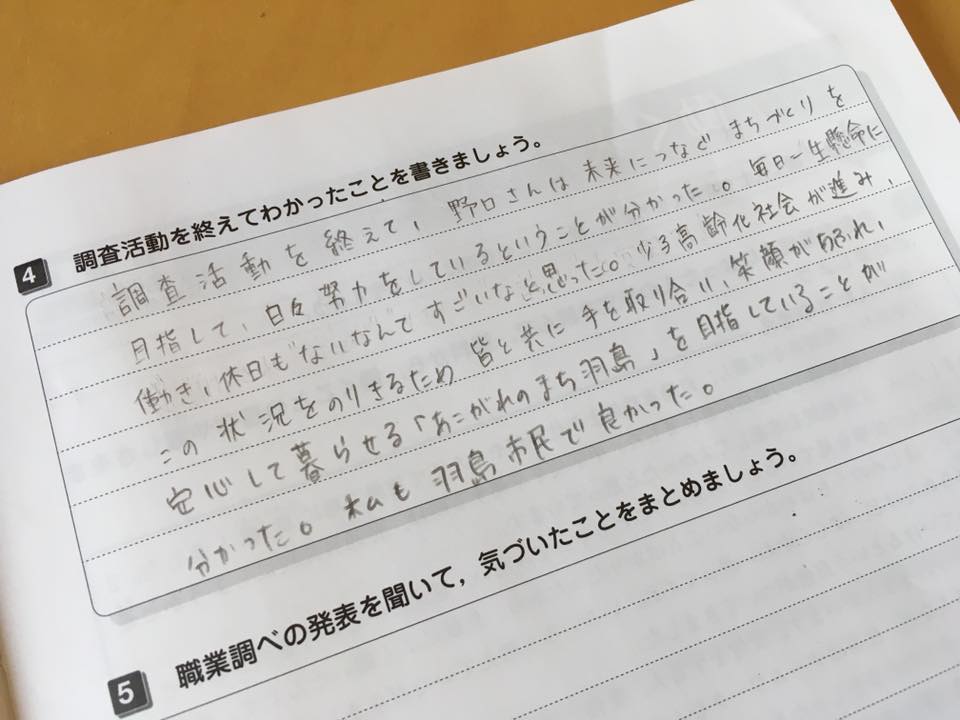 4 調査活動を終えてわかったことを書きましょう。
調査活動を終えて、野口さんは未来につなぐまちづくりを
目指して、日々努力をしているということが分かった。毎日一生懸命に
働き、休日もないなんてすごいなと思った。少子高齢化社会が進み、
この状況をのりきるため皆と共に手を取り合い、笑顔があふれ、
安心して暮らせる「あこがれのまち羽島」を目指していることが
分かった。私も羽島市民で良かった。
5 職業調べの発表を聞いて，気づいたことをまとめましょう。